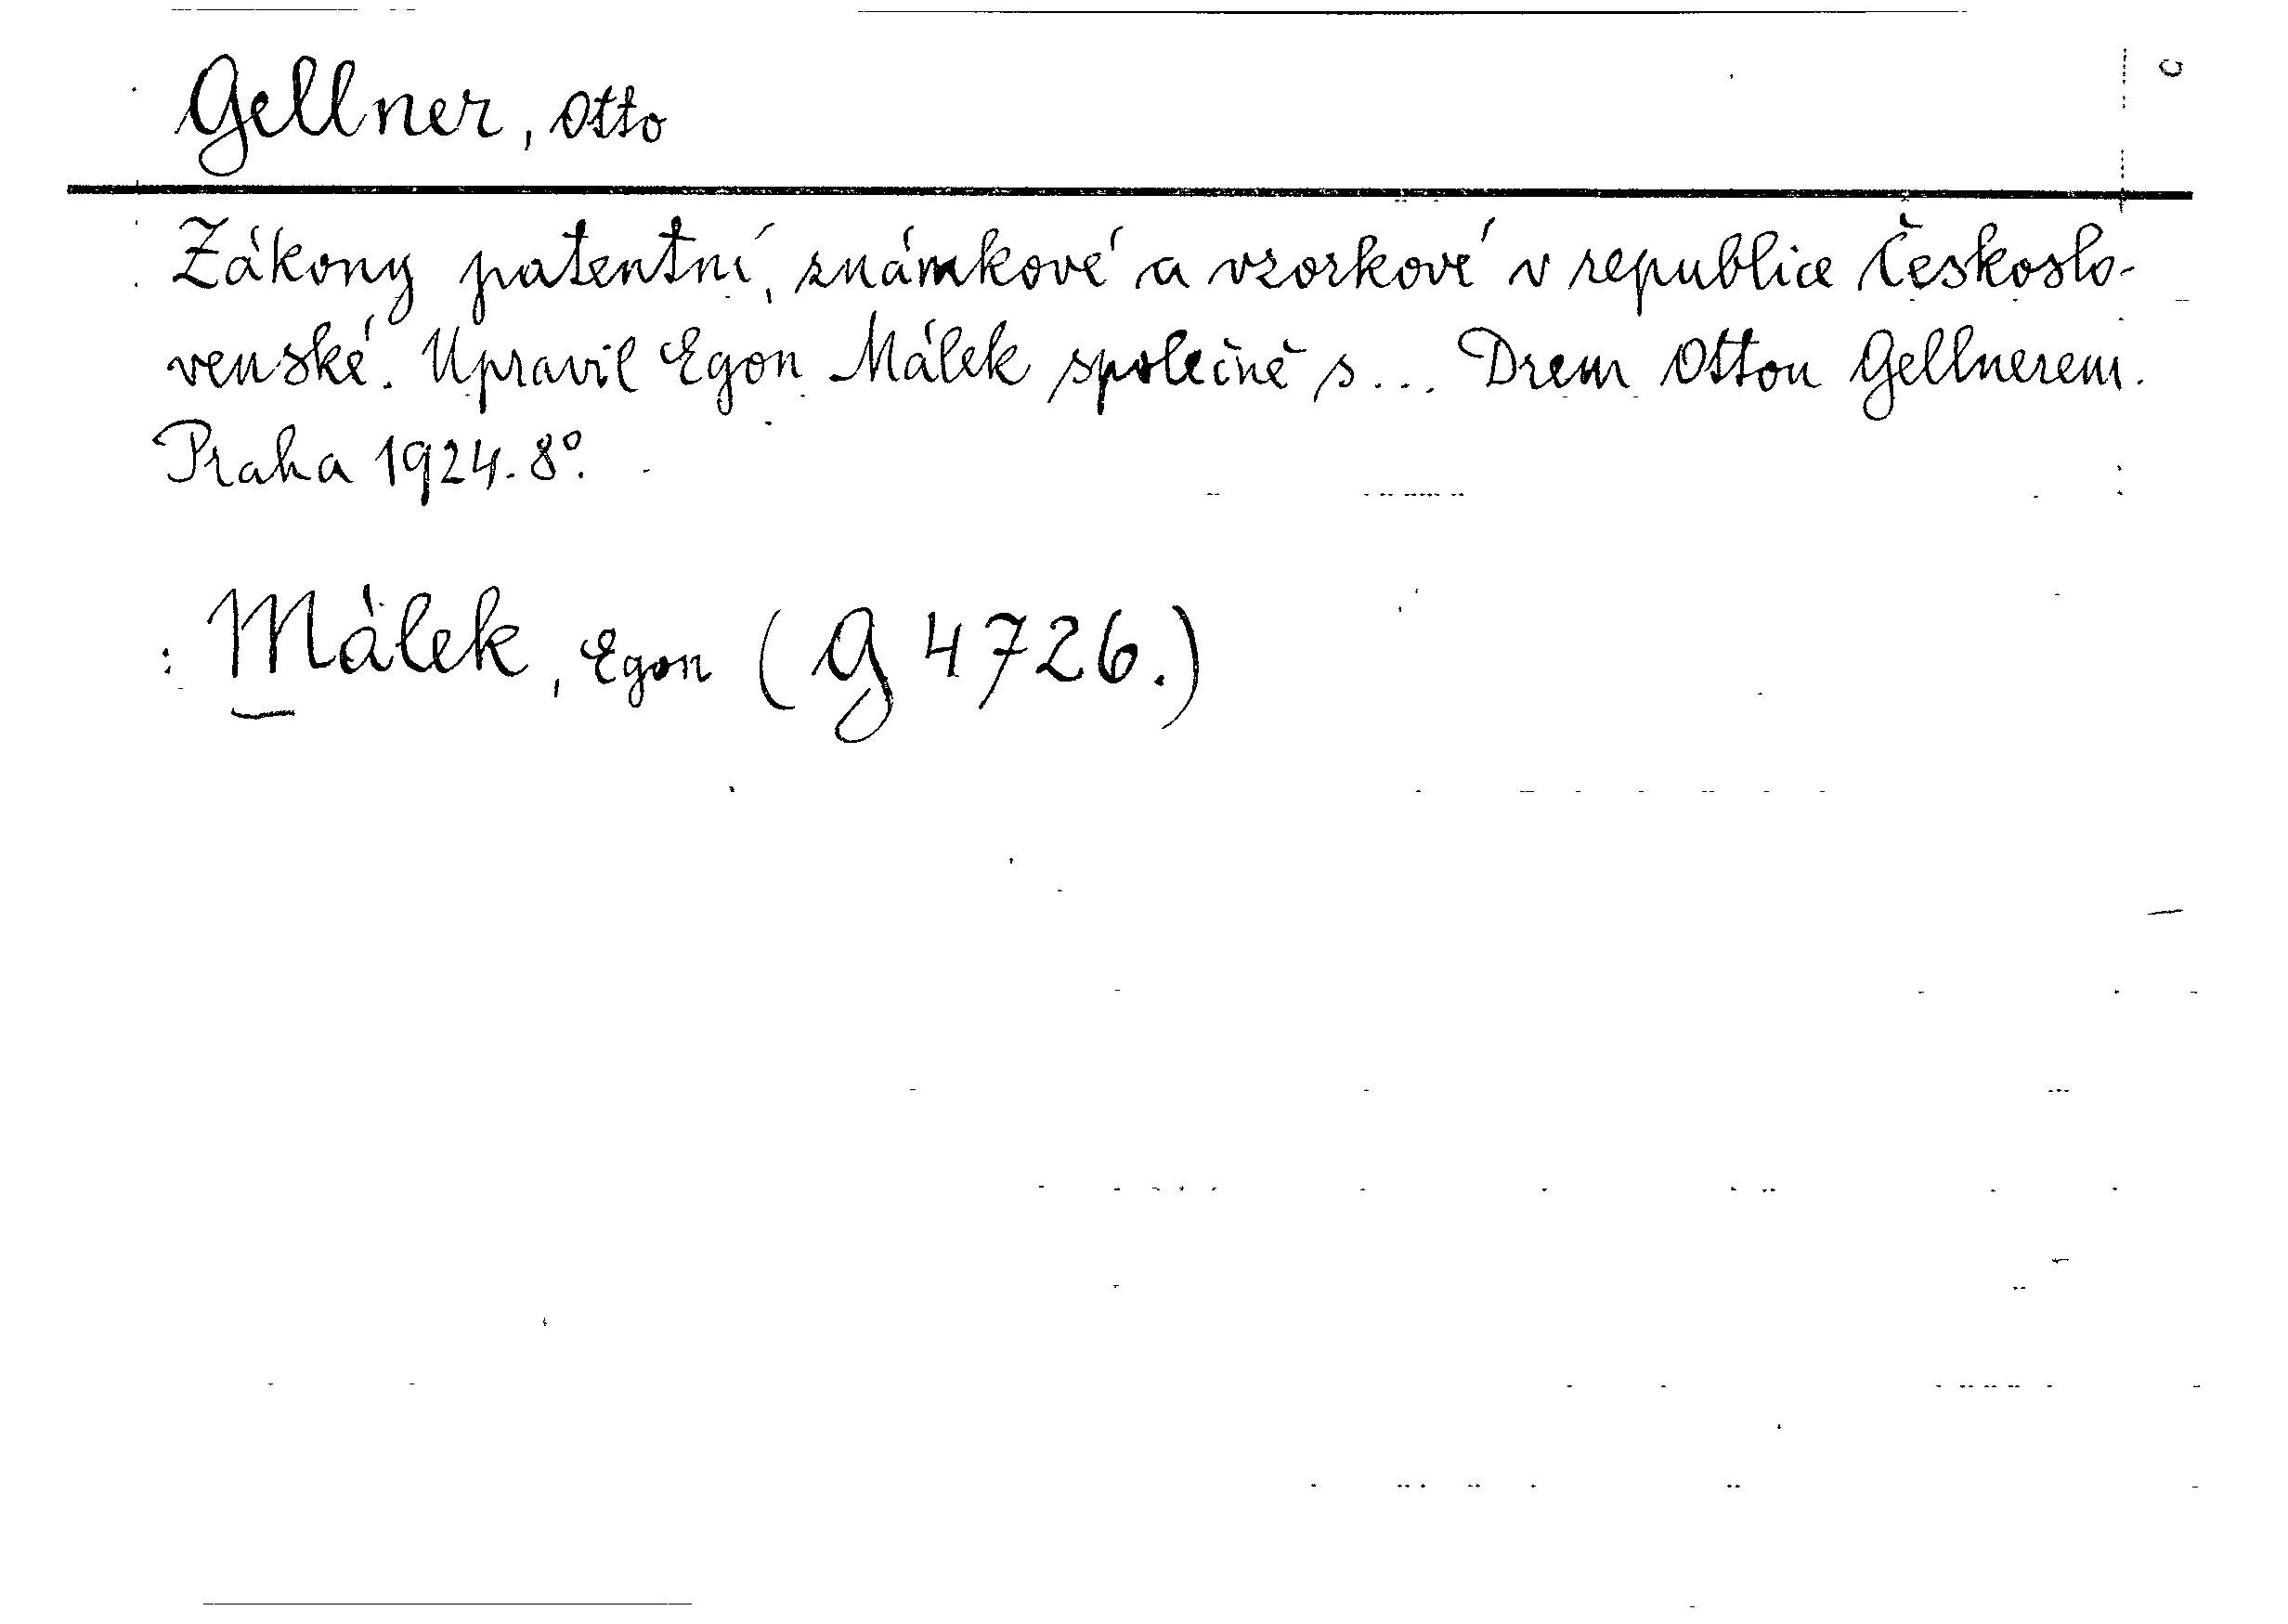 Gellner, Otto
Zákony patentní, známkové a vzorkové v republice Českoslo-
venské. Upravil Egon Málek společně s... Drem Ottou Gellnerem.
Praha 1924. 8°.
Málek, Egon (G 4726.)